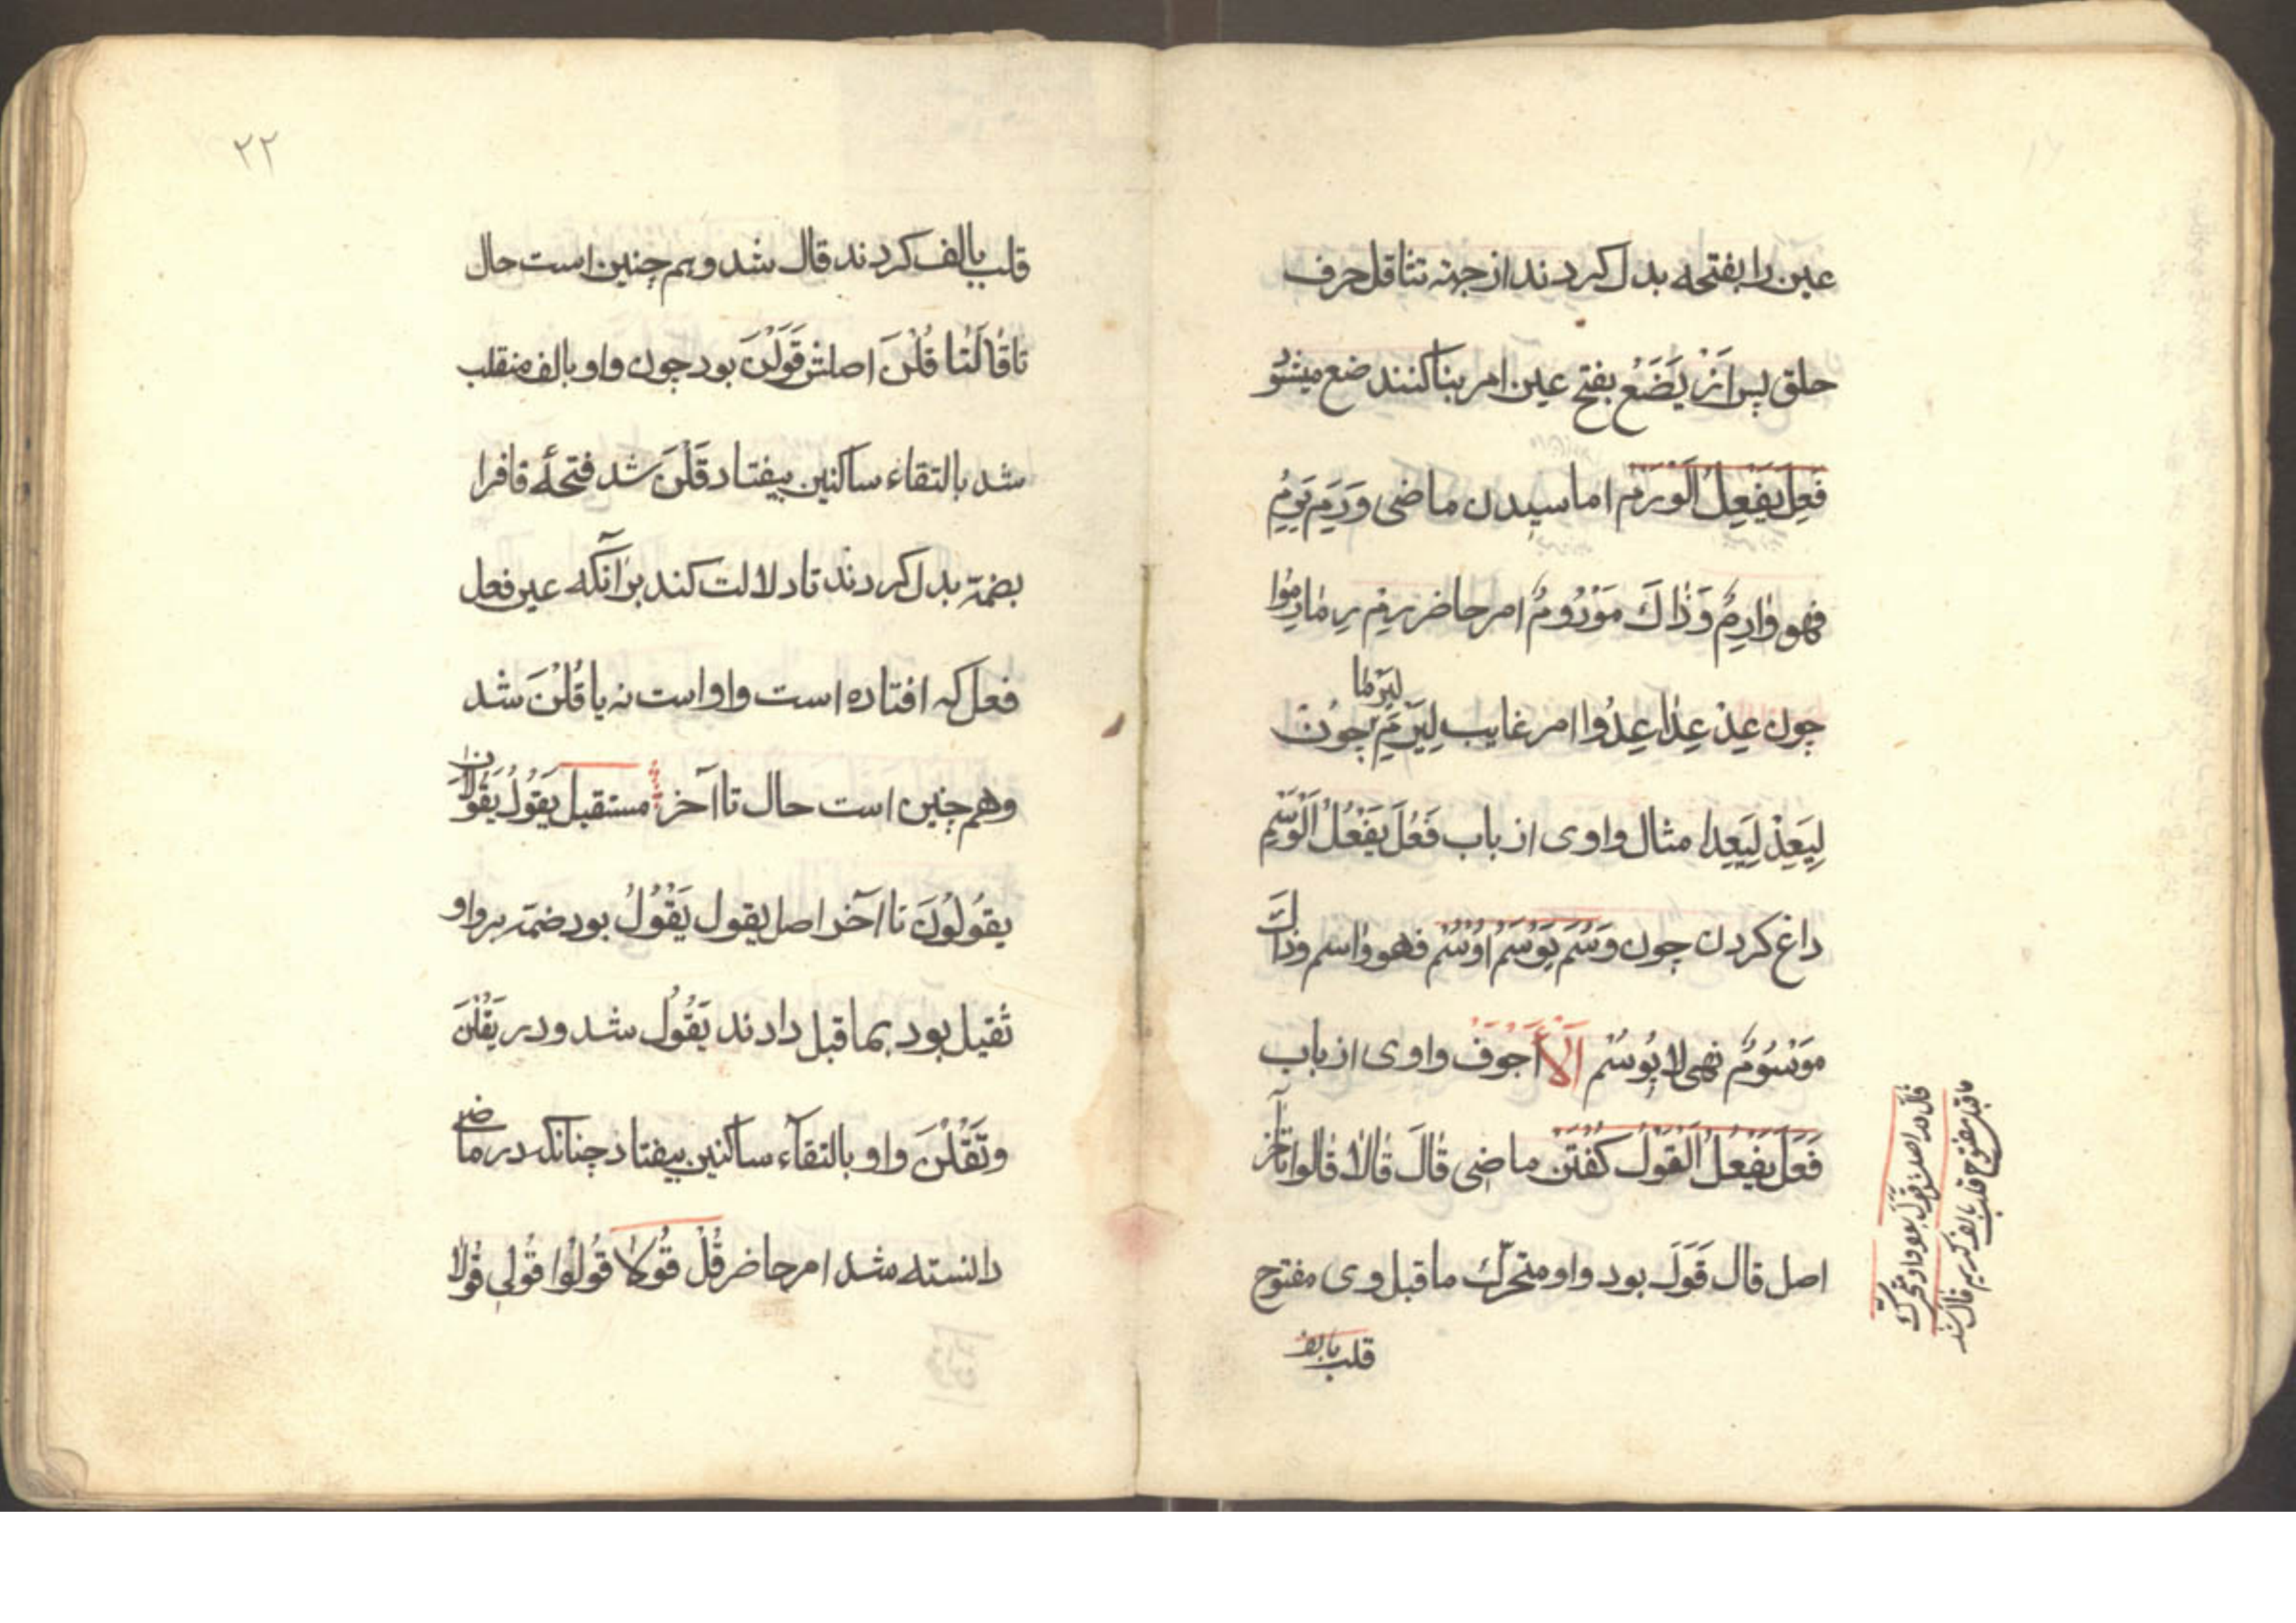 عین را بفتحه بدل کردند از جهة تثاقل حرف
حلق پس اَزْ یَضَعُ بفتح عین امر بنا کنند ضع میشود
فَعِلَ یَفْعِلُ اَلْوَرَمْ اماسیدن ماضی وَرِمَ یَرِمُ
فهو وٰارِمٌ وَذٰاكَ مَوْرُومٌ امر حاضر رِمْ رِمٰا رِمُوا
چون عِدْ عِدٰا عِدُوا امر غایب لِیَرِمْ لیَرِمٰا چون
لِیَعِدْ لِیَعِدٰا مثال واوی از باب فَعُلَ یَفْعُلُ اَلْوَسْمِ
داغ کردن چون وَسُمَ یَوْسُمُ اُوْسُمْ فهو وٰاسم وذٰاكَ
مَوْسُومٌ نهی لا یُوسُمْ اَلْاَجوف واوی از باب
فَعَلَ یَفْعُلُ اَلْقَوْلُ کُفْتَنْ ماضی قٰالَ قٰالاٰ قٰالوا تا آخر
اصل قال قَوَلَ بود واو متحرّك ماقبل وی مفتوح
قلب بالف
قال در اصل قَوَلَ بود واو متحرك
ماقبل مفتوح قلب بالف کردیم قال شد
۲۲
قلب بالف کردند قال شد و هم چنین است حال
تا قٰالَتٰا قُلْنَ اصلش قَوَلْنَ بود چون واو بالف منقلب
شد بالتقاء ساکنین بیفتاد قَلْنَ شد فتحهٔ قاف را
بضمّه بدل کردند تا دلالت کند بر آنکه عین فعل
فعل که افتاده است واو است نه یا قُلْنَ شد
وهم چنین است حال تا آخر مستقبل یَقُولُ یَقُولاٰنِ
یقُولُونَ تا آخر اصل یقول یَقْوُلُ بود ضمّه بر واو
ثقیل بود بما قبل دادند یَقُولُ شد و در یَقُلْنَ
وتَقُلْنَ واو بالتقآء ساکنین بیفتاد چنانکه در ماضی
دانسته شد امر حاضر قُلْ قُولاٰ قُولُوا قُولی قُولاٰ